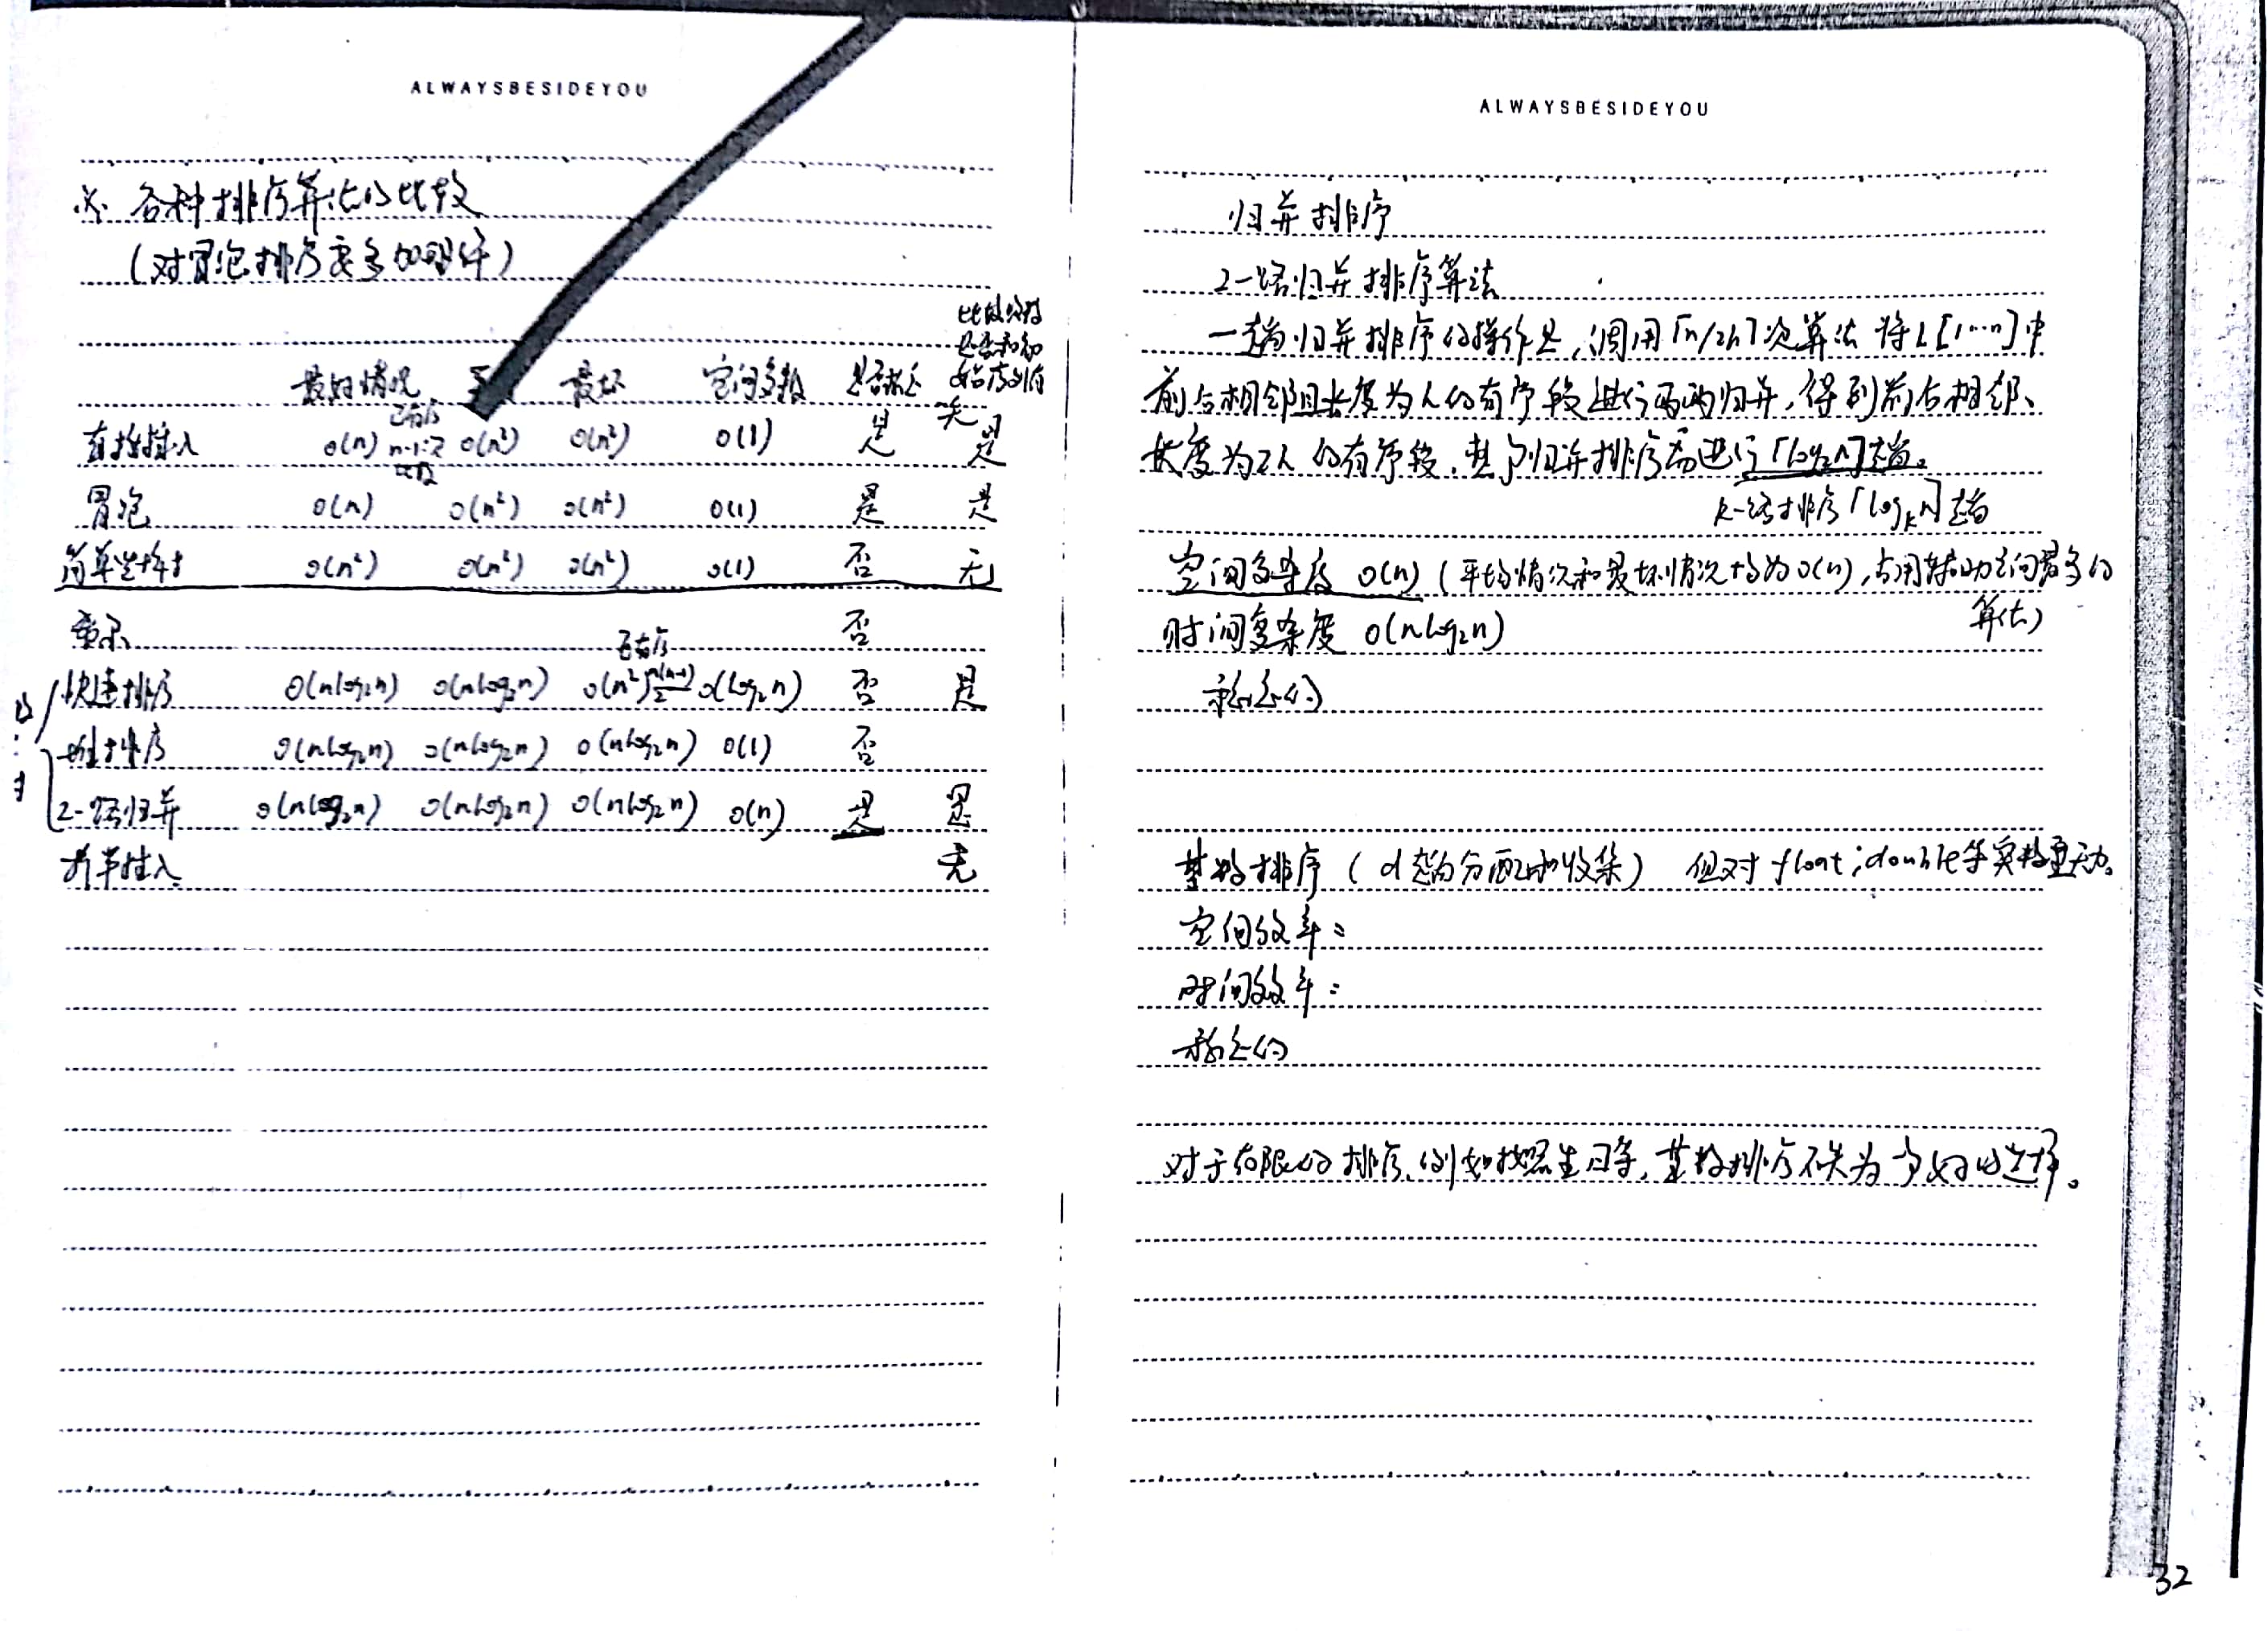 ALWAYSBESIDEYOU
※ 各种排序算法的比较
(对冒泡排序要多加留意)
比较次数
是否和初
始序列有
关
最好情况 最坏 空间复杂 是否稳定
直接插入 O(n) 已有序 n-1次比较 O(n²) O(n²) O(1) 是 是
冒泡 O(n) O(n²) O(n²) O(1) 是 是
简单选择 O(n²) O(n²) O(n²) O(1) 否 无
希尔 否
快速排序 O(nlog₂n) O(nlog₂n) 已有序 O(n²) n(n-1)/2 O(log₂n) 否 是
堆排序 O(nlog₂n) O(nlog₂n) O(nlog₂n) O(1) 否
2-路归并 O(nlog₂n) O(nlog₂n) O(nlog₂n) O(n) 是 是
折半插入 无
ALWAYSBESIDEYOU
归并排序
2-路归并排序算法
一趟归并排序的操作是,调用⌈n/2h⌉次算法 将L[1…n]中
前后相邻且长度为h的有序段进行两两归并,得到前后相邻、
长度为2h的有序段,整个归并排序需进行⌈log₂n⌉趟。
k-路排序⌈logₖn⌉趟
空间复杂度 O(n) (平均情况和最坏情况均为O(n),占用辅助空间最多的
算法)
时间复杂度 O(nlog₂n)
稳定的
基数排序 (d趟分配和收集) 但对 float;double等实数型无力。
空间效率:
时间效率:
稳定的
对于有限的排序,例如按照生日等,基数排序不失为一个好的选择。
32